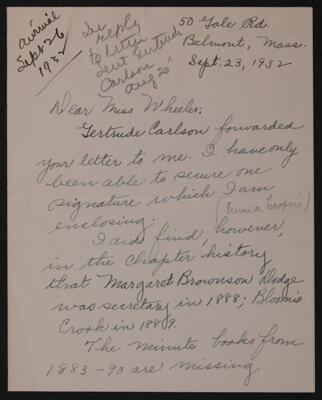 (arrived
Sept 26
1932
In
reply
to letter
sent Gertrude
Carlson
Aug 20
50 Gale Rd.
Belmont, Mass.
Sept. 23, 1932
Dear Miss Wheeler:
Gertrude Carlson forwarded
your letter to me. I have only
been able to secure one
signature which I am
enclosing.
(Emma Coopers)
I did find, however,
in the Chapter history
that Margaret Brownson Dodge
was secretary in 1888; Bloomie
Crook in 1889.
The minute books from
1883-90 are missing